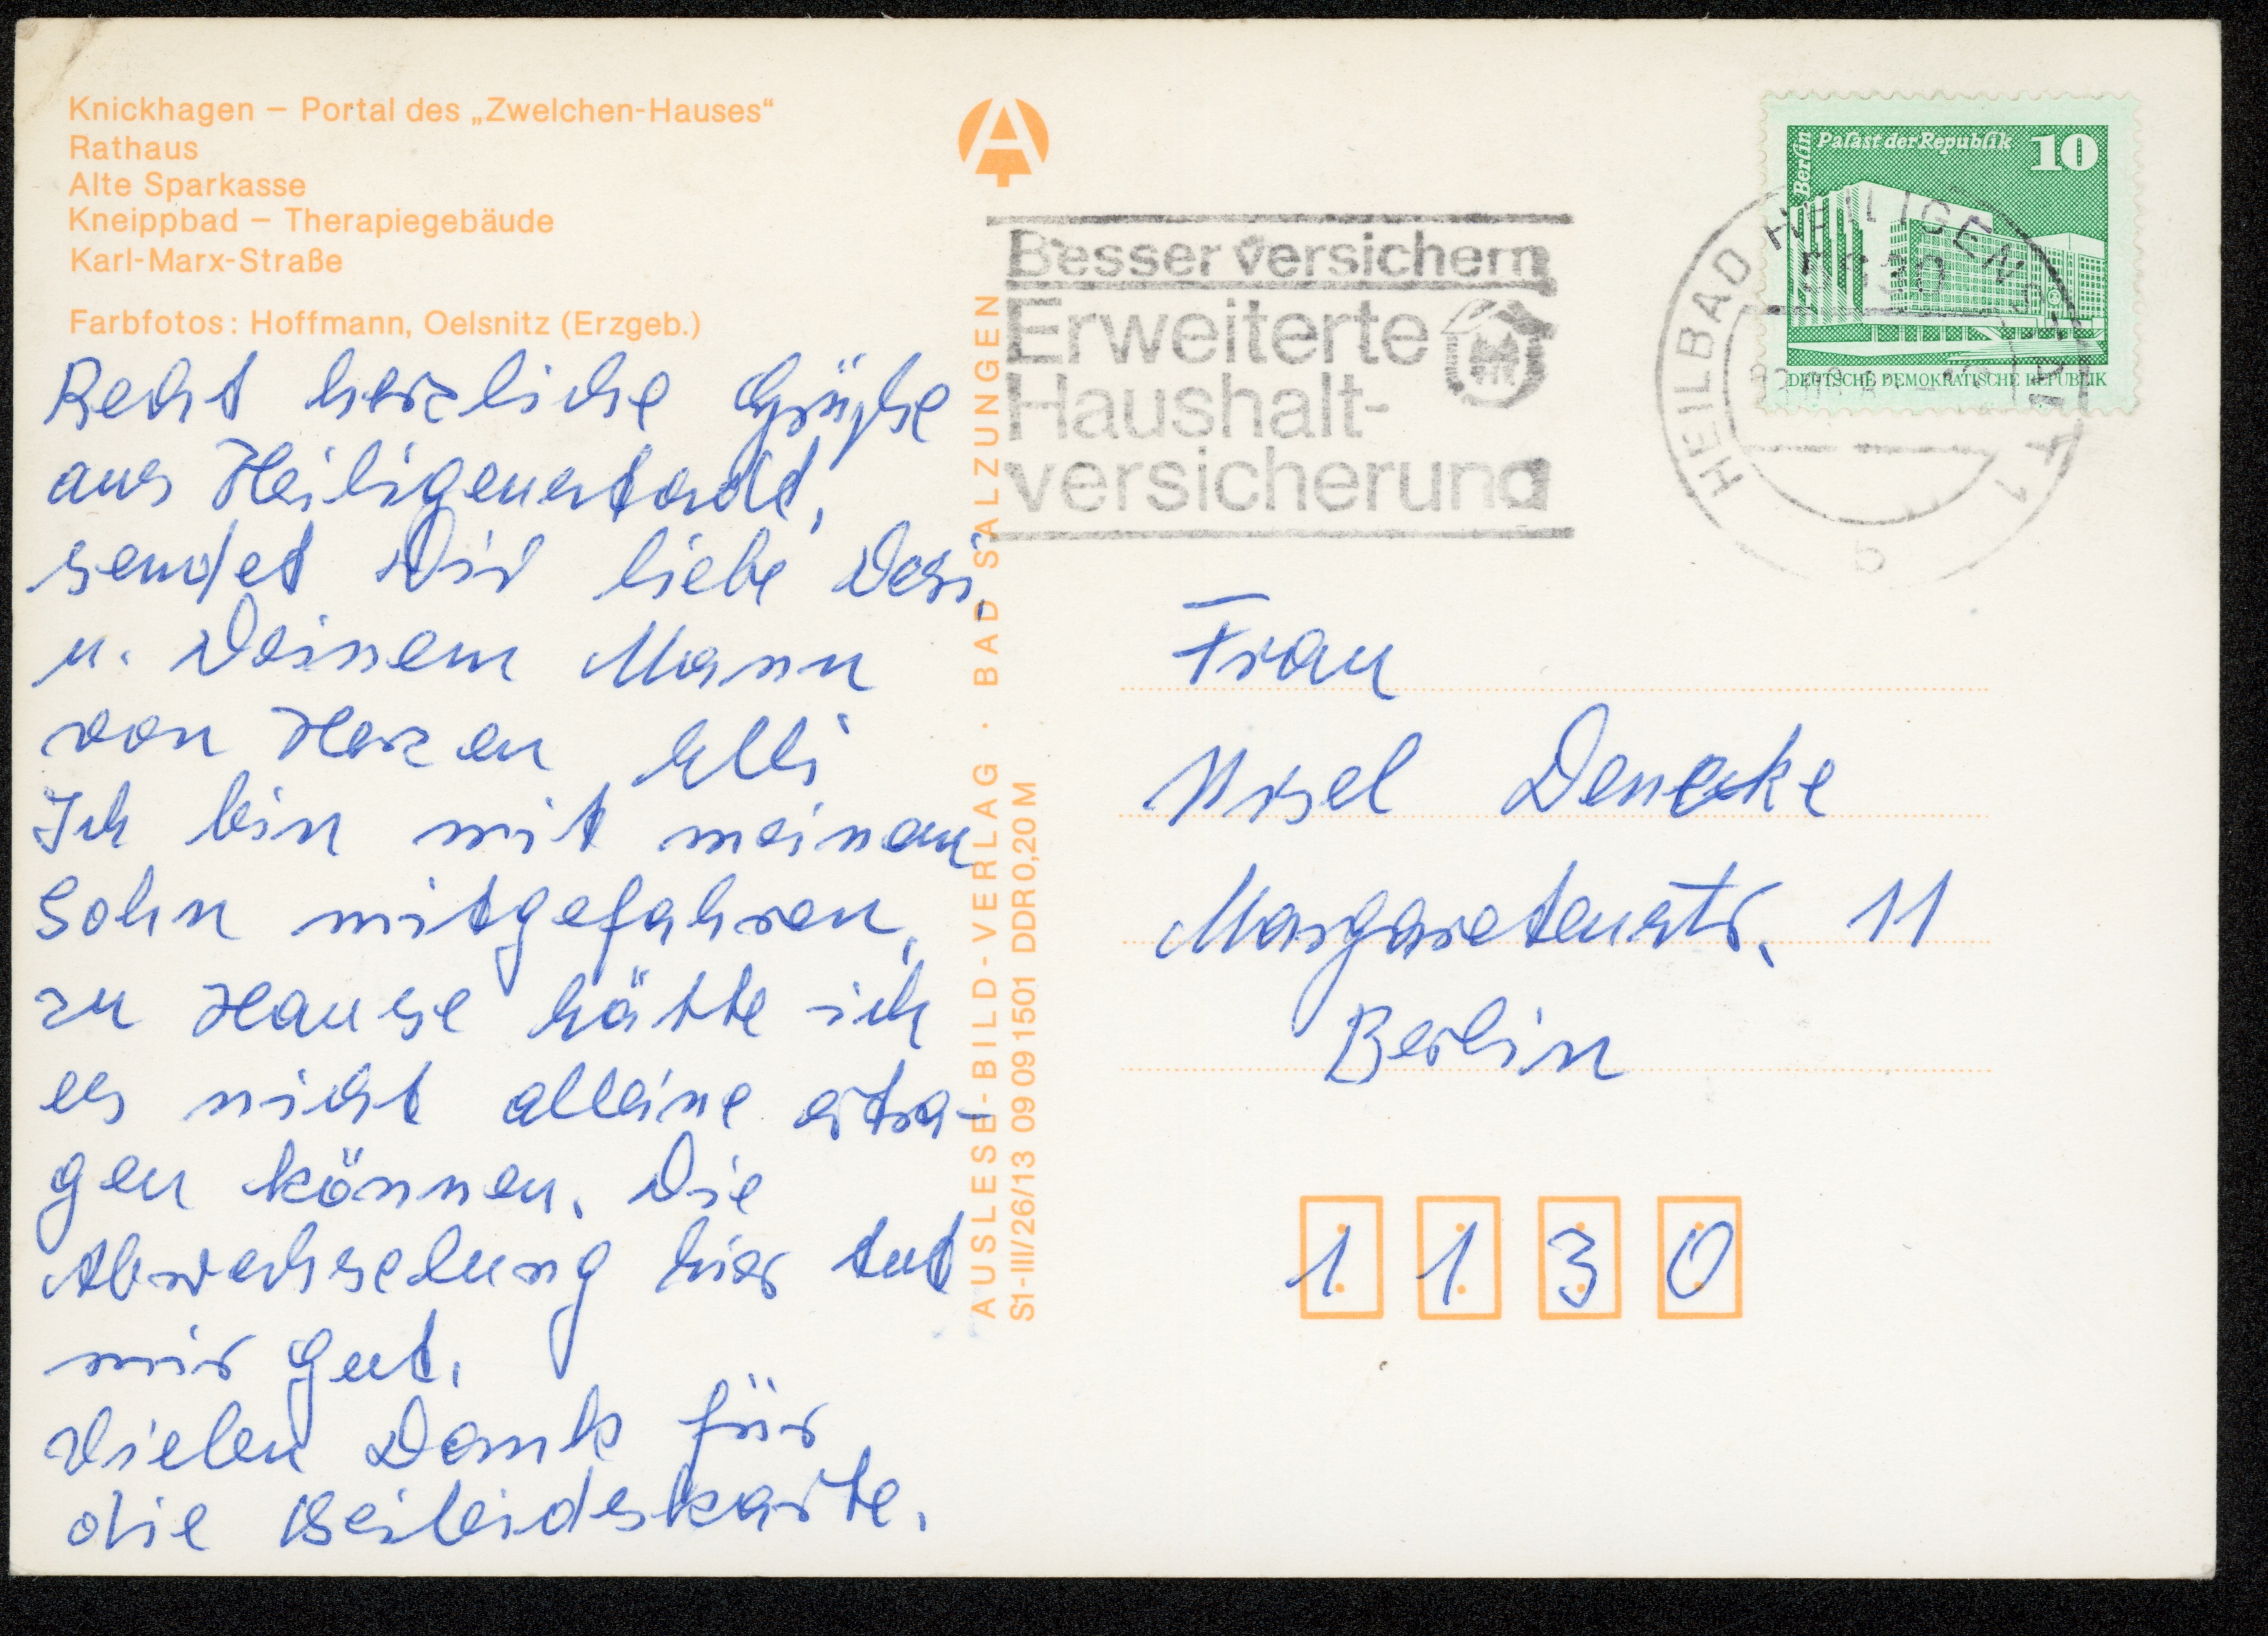 Knickhagen – Portal des „Zwelchen-Hauses“
Rathaus
Alte Sparkasse
Kneippbad – Therapiegebäude
Karl-Marx-Straße
Farbfotos: Hoffmann, Oelsnitz (Erzgeb.)
Recht herzliche Grüße
aus Heiligenstadt,
sendet Dir liebe
u. Deinem Mann
von Herzen Elli
Ich bin mit meinem
Sohn mitgefahren,
zu Hause hätte ich
es nicht alleine ertra-
gen können. Die
Abwechselung hier tut
mir gut.
Vielen Dank für
die Beileidskarte.
AUSLESE-BILD-VERLAG · BAD SALZUNGEN
S1-III/26/13 09 09 1501 DDR 0,20 M
Besser versichern
Erweiterte
Haushalt-
versicherung
Berlin Palast der Republik 10
DEUTSCHE DEMOKRATISCHE REPUBLIK
HEILBAD HEILIGENSTADT 1
5630
b
Frau
Ursel Denecke
Margaretenstr. 11
Berlin
1130